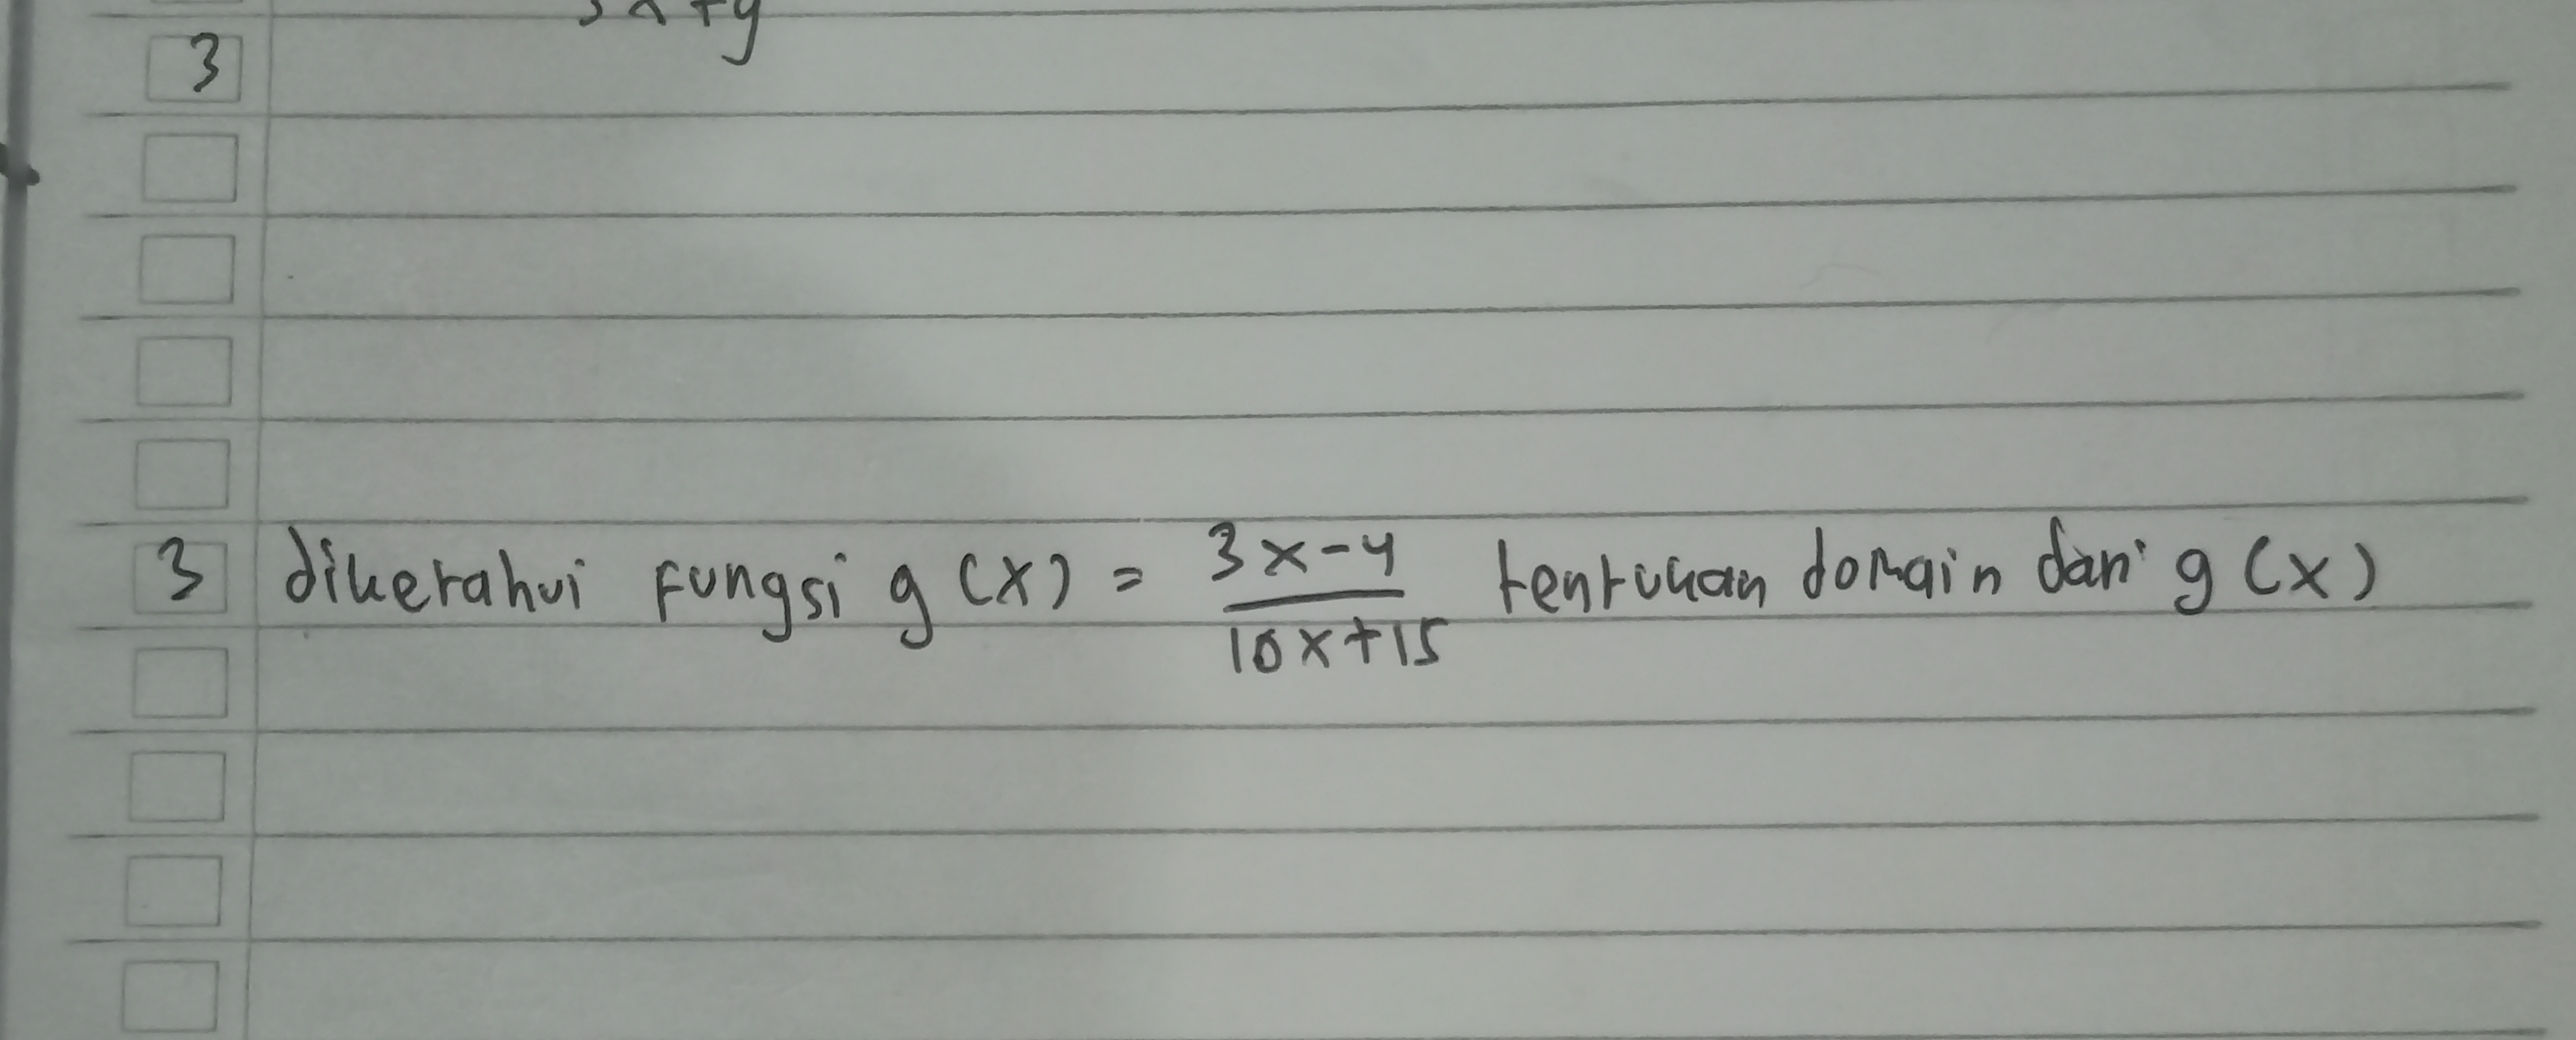 3x+y
3
3 diketahui fungsi g(x) = 3x-4 / 10x+15 tentukan domain dari g(x)